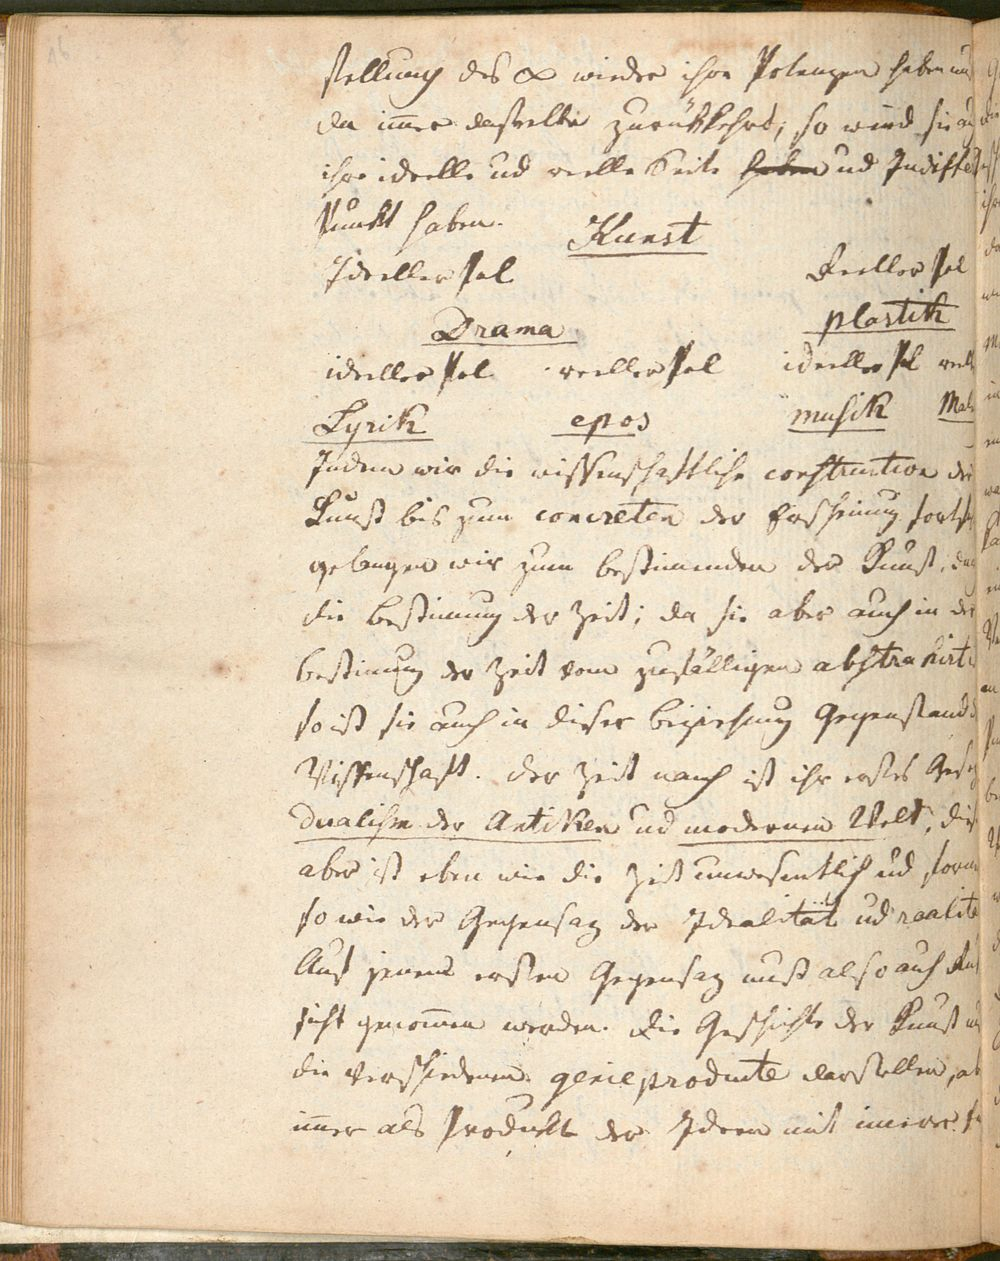 stellung des ∞ wieder ihre Potenzen haben und
da immer dasselbe zurükkehrt, so wird sie au
ihre ideelle ud reelle Seite haben ud Indiffe
Punkt haben.
Kunst
Ideeller Pol Reeller Pol
Drama Plastik
ideeller Pol reeller Pol ideeller Pol reell
Lyrik epos musik Mal
Indem wir die wissenschaftliche construction der
Kunst bis zum concreten der Erscheinung fort
gelangen wir zum bestimmenden der Kunst,
die bestimung der Zeit; da sie aber auch in der
bestimung der Zeit vom zufälligen abstrahirt
so ist sie auch in dieser beziehung Gegenstand d
Wissenschaft. der Zeit nach ist ihr erstes Gese
Dualism der Antiken ud modernen Welt, dies
aber ist eben wie die Zeit unwesentlich ud form
so wie der Gegensaz der Idealität ud realitä
Auf jenen ersten Gegensaz muß also auch Rük
sicht genomen werden. die Geschichte der Kunst
die verschiedenen genieproducte darstellen, ab
imer als Produkt der Ideen mit innerer